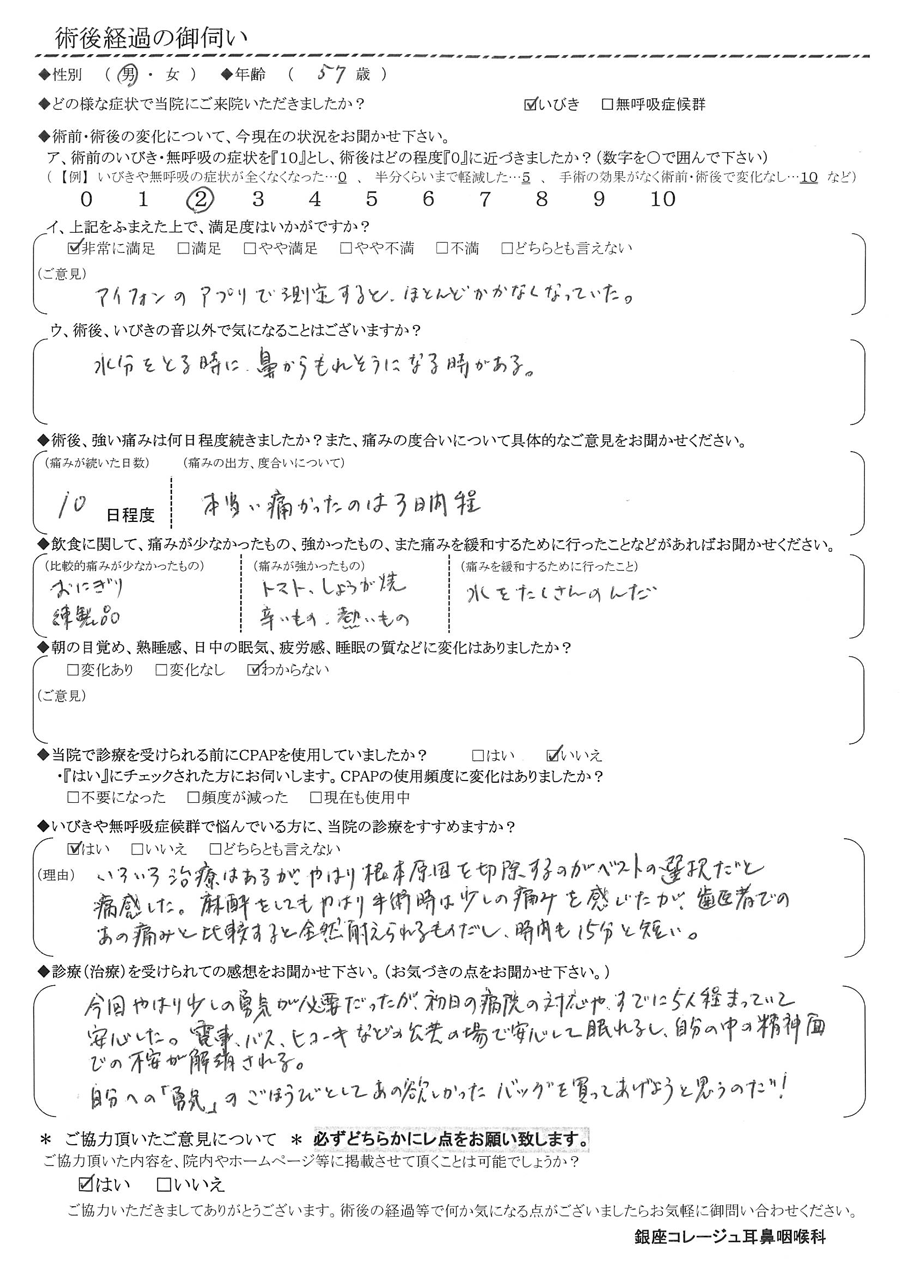 術後経過の御伺い
◆性別 （ 男 ・ 女 ） ◆年齢 （ 57 歳 ）
◆どの様な症状で当院にご来院いただきましたか？ ☑いびき □無呼吸症候群
◆術前・術後の変化について、今現在の状況をお聞かせ下さい。
ア、術前のいびき・無呼吸の症状を『10』とし、術後はどの程度『0』に近づきましたか？（数字を○で囲んで下さい）
（ 【例】 いびきや無呼吸の症状が全くなくなった…0 、 半分くらいまで軽減した…5 、 手術の効果がなく術前・術後で変化なし…10 など）
0 1 2 3 4 5 6 7 8 9 10
イ、上記をふまえた上で、満足度はいかがですか？
☑非常に満足 □満足 □やや満足 □やや不満 □不満 □どちらとも言えない
（ご意見）
アイフォンのアプリで測定すると、ほとんどかかなくなっていた。
ウ、術後、いびきの音以外で気になることはございますか？
水分をとる時に、鼻からもれそうになる時がある。
◆術後、強い痛みは何日程度続きましたか？また、痛みの度合いについて具体的なご意見をお聞かせください。
（痛みが続いた日数） （痛みの出方、度合いについて）
10 日程度 本当に痛かったのは3日間程
◆飲食に関して、痛みが少なかったもの、強かったもの、また痛みを緩和するために行ったことなどがあればお聞かせください。
（比較的痛みが少なかったもの） （痛みが強かったもの） （痛みを緩和するために行ったこと）
おにぎり トマト、しょうが焼 水をたくさんのんだ
練製品 辛いもの、熱いもの
◆朝の目覚め、熟睡感、日中の眠気、疲労感、睡眠の質などに変化はありましたか？
□変化あり □変化なし ☑わからない
（ご意見）
◆当院で診療を受けられる前にCPAPを使用していましたか？ □はい ☑いいえ
・『はい』にチェックされた方にお伺いします。CPAPの使用頻度に変化はありましたか？
□不要になった □頻度が減った □現在も使用中
◆いびきや無呼吸症候群で悩んでいる方に、当院の診療をすすめますか？
☑はい □いいえ □どちらとも言えない
（理由） いろいろ治療はあるが、やはり根本原因を切除するのがベストの選択だと
痛感した。麻酔をしてもやはり手術時は少しの痛みを感じたが、歯医者での
あの痛みと比較すると全然耐えられるものだし、時間も15分と短い。
◆診療（治療）を受けられての感想をお聞かせ下さい。（お気づきの点をお聞かせ下さい。）
今回やはり少しの勇気が必要だったが、初日の病院の対応や、すでに5人程まっていて
安心した。電車、バス、ヒコーキなどの公共の場で安心して眠れるし、自分の中の精神面
での不安が解消される。
自分への「勇気」のごほうびとしてあの欲しかったバッグを買ってあげようと思うのだ！
＊ ご協力頂いたご意見について ＊ 必ずどちらかにレ点をお願い致します。
ご協力頂いた内容を、院内やホームページ等に掲載させて頂くことは可能でしょうか？
☑はい □いいえ
ご協力いただきましてありがとうございます。術後の経過等で何か気になる点がございましたらお気軽に御問い合わせください。
銀座コレージュ耳鼻咽喉科